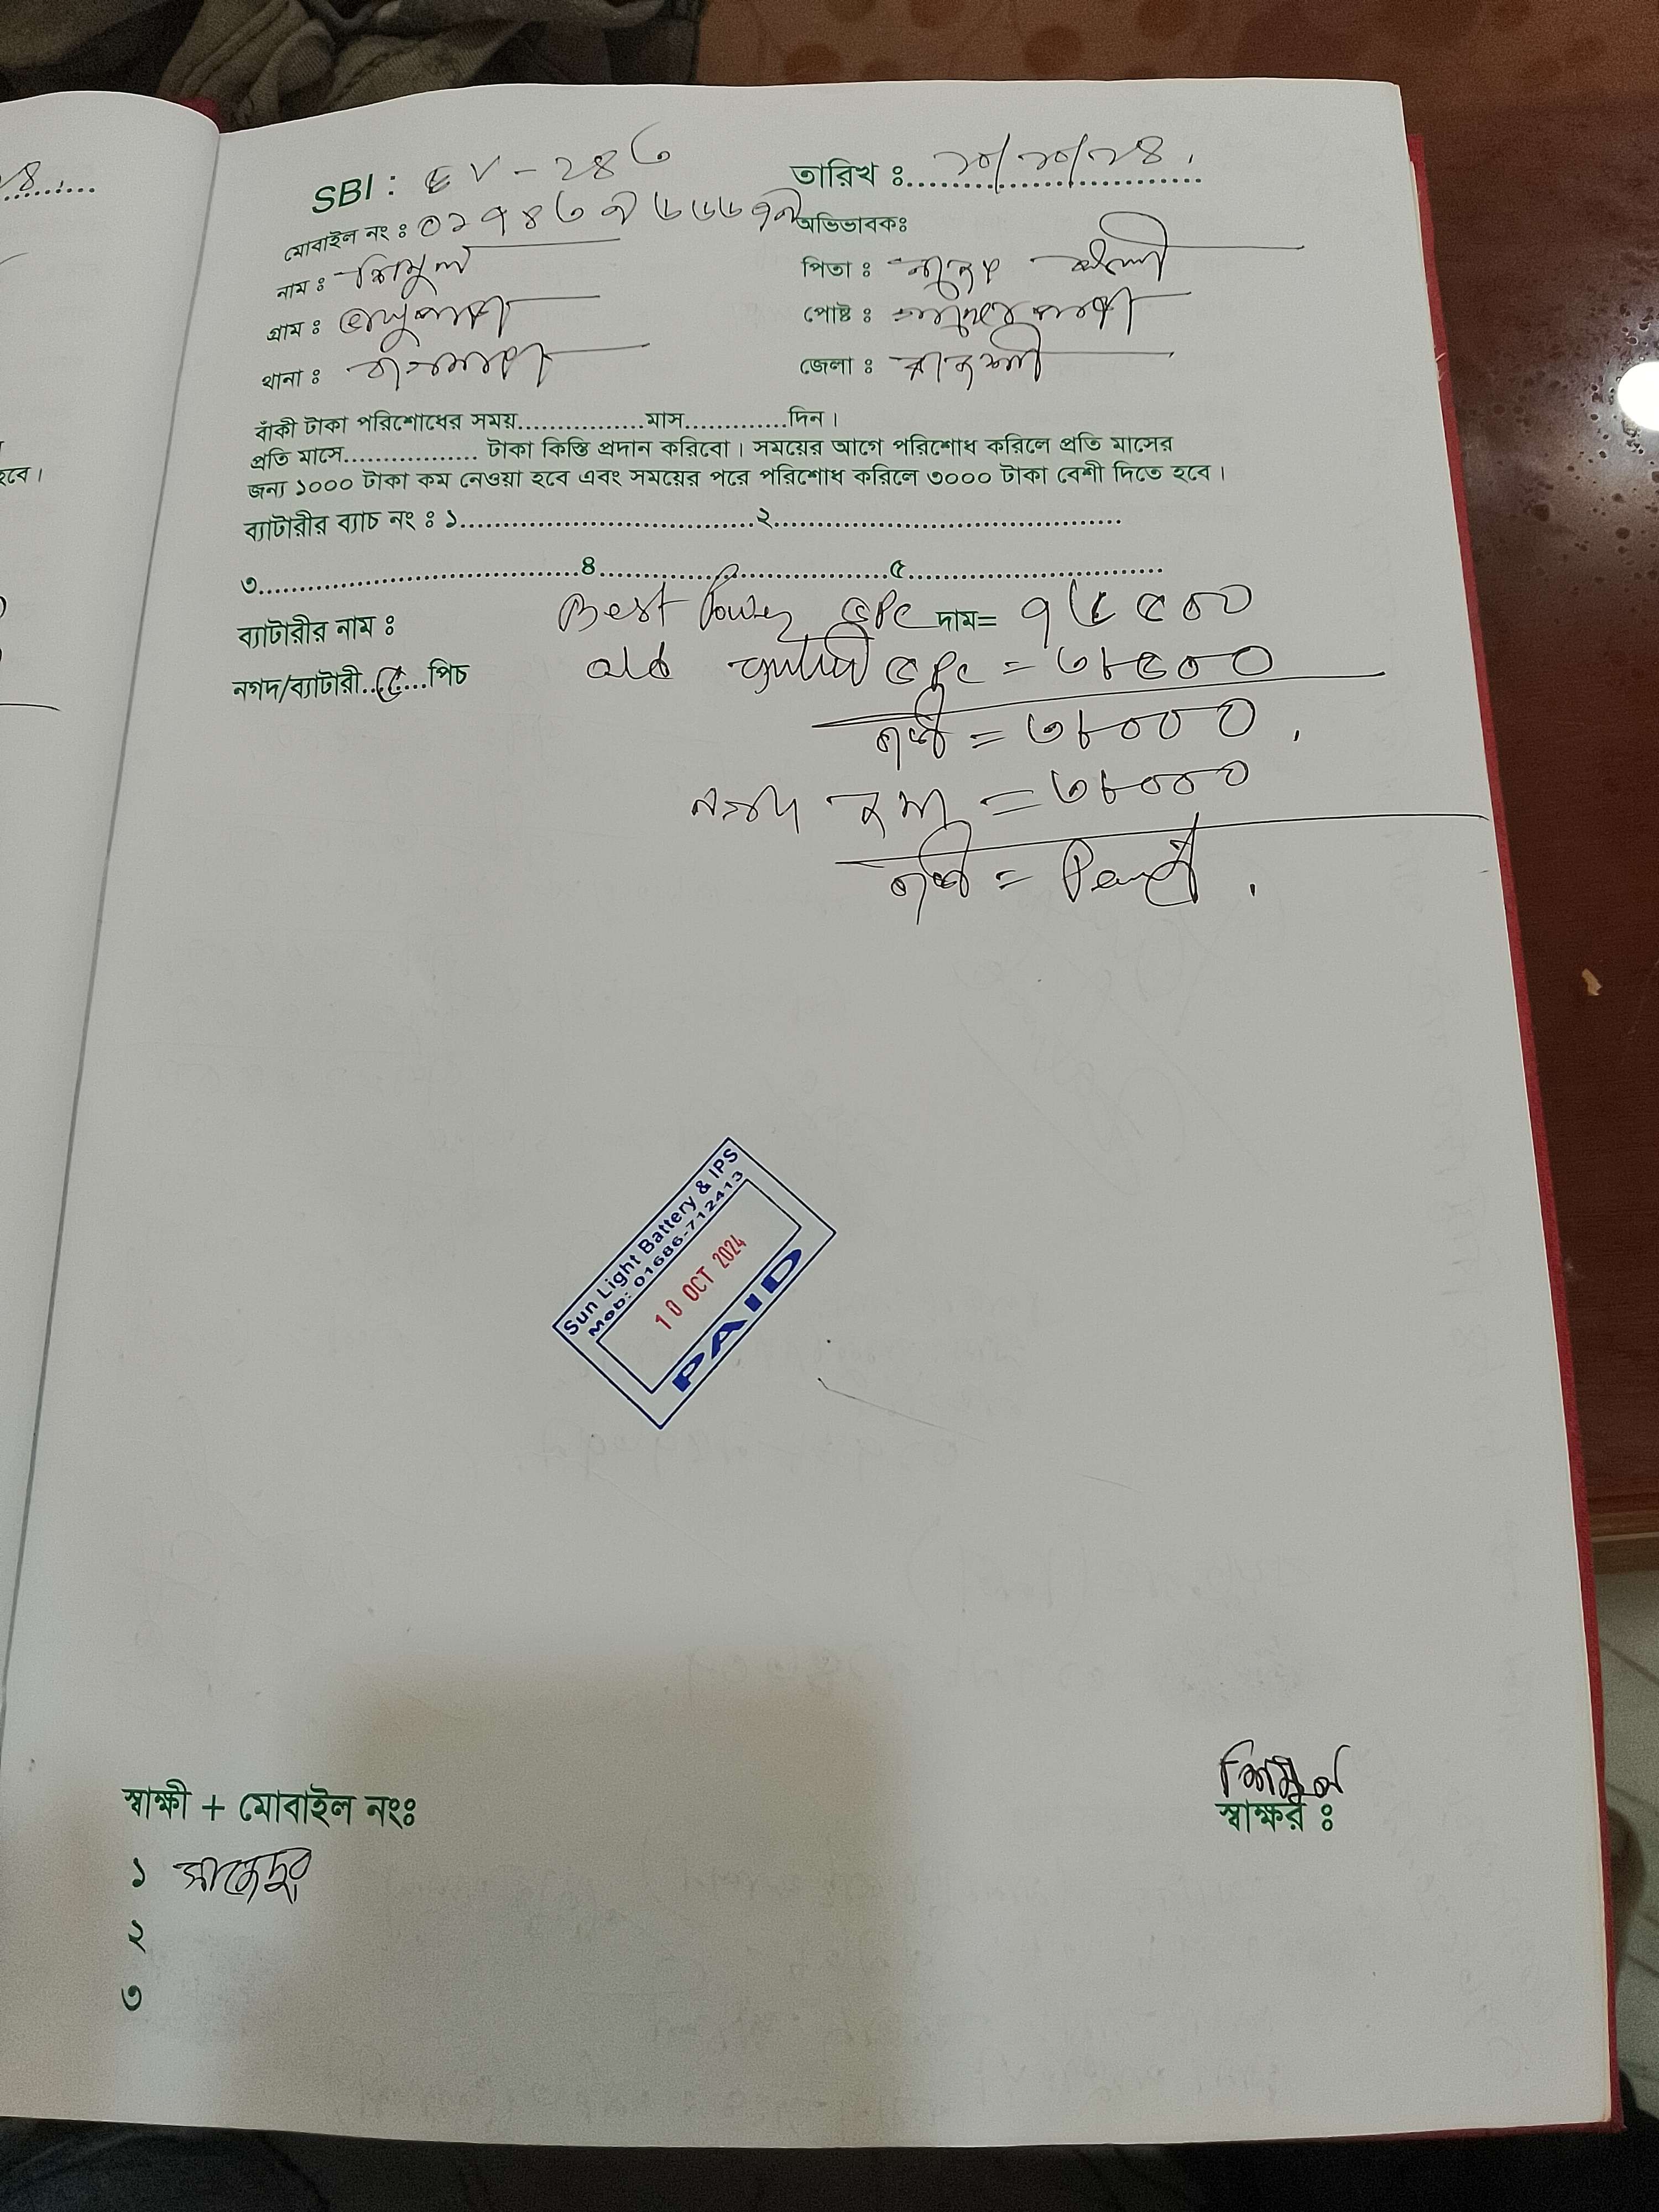 SBI : EV - 286
তারিখ : ১০/১০/২৪
মোবাইল নং :
অভিভাবকঃ
নাম : শিমুল
পিতা :
গ্রাম :
পোষ্ট :
থানা :
জেলা :
বাঁকী টাকা পরিশোধের সময়...............মাস............দিন।
প্রতি মাসে................ টাকা কিস্তি প্রদান করিবো। সময়ের আগে পরিশোধ করিলে প্রতি মাসের
জন্য ১০০০ টাকা কম নেওয়া হবে এবং সময়ের পরে পরিশোধ করিলে ৩০০০ টাকা বেশী দিতে হবে।
ব্যাটারীর ব্যাচ নং : ১..................................২........................................
৩.....................................৪...................................৫..............................
ব্যাটারীর নাম : Best Power ৫Pc দাম= ৭৬৫০০
নগদ/ব্যাটারী..৫...পিচ old ৫Pc = ৩৮৫০০
বাকী = ৩৮০০০
নগদ জমা = ৩৮০০০
বাকী = Paid
Sun Light Battery & IPS
Mob: 01686-712413
10 OCT 2024
PAID
শিমুল
স্বাক্ষী + মোবাইল নংঃ
স্বাক্ষর :
১ সাজেদুর
২
৩